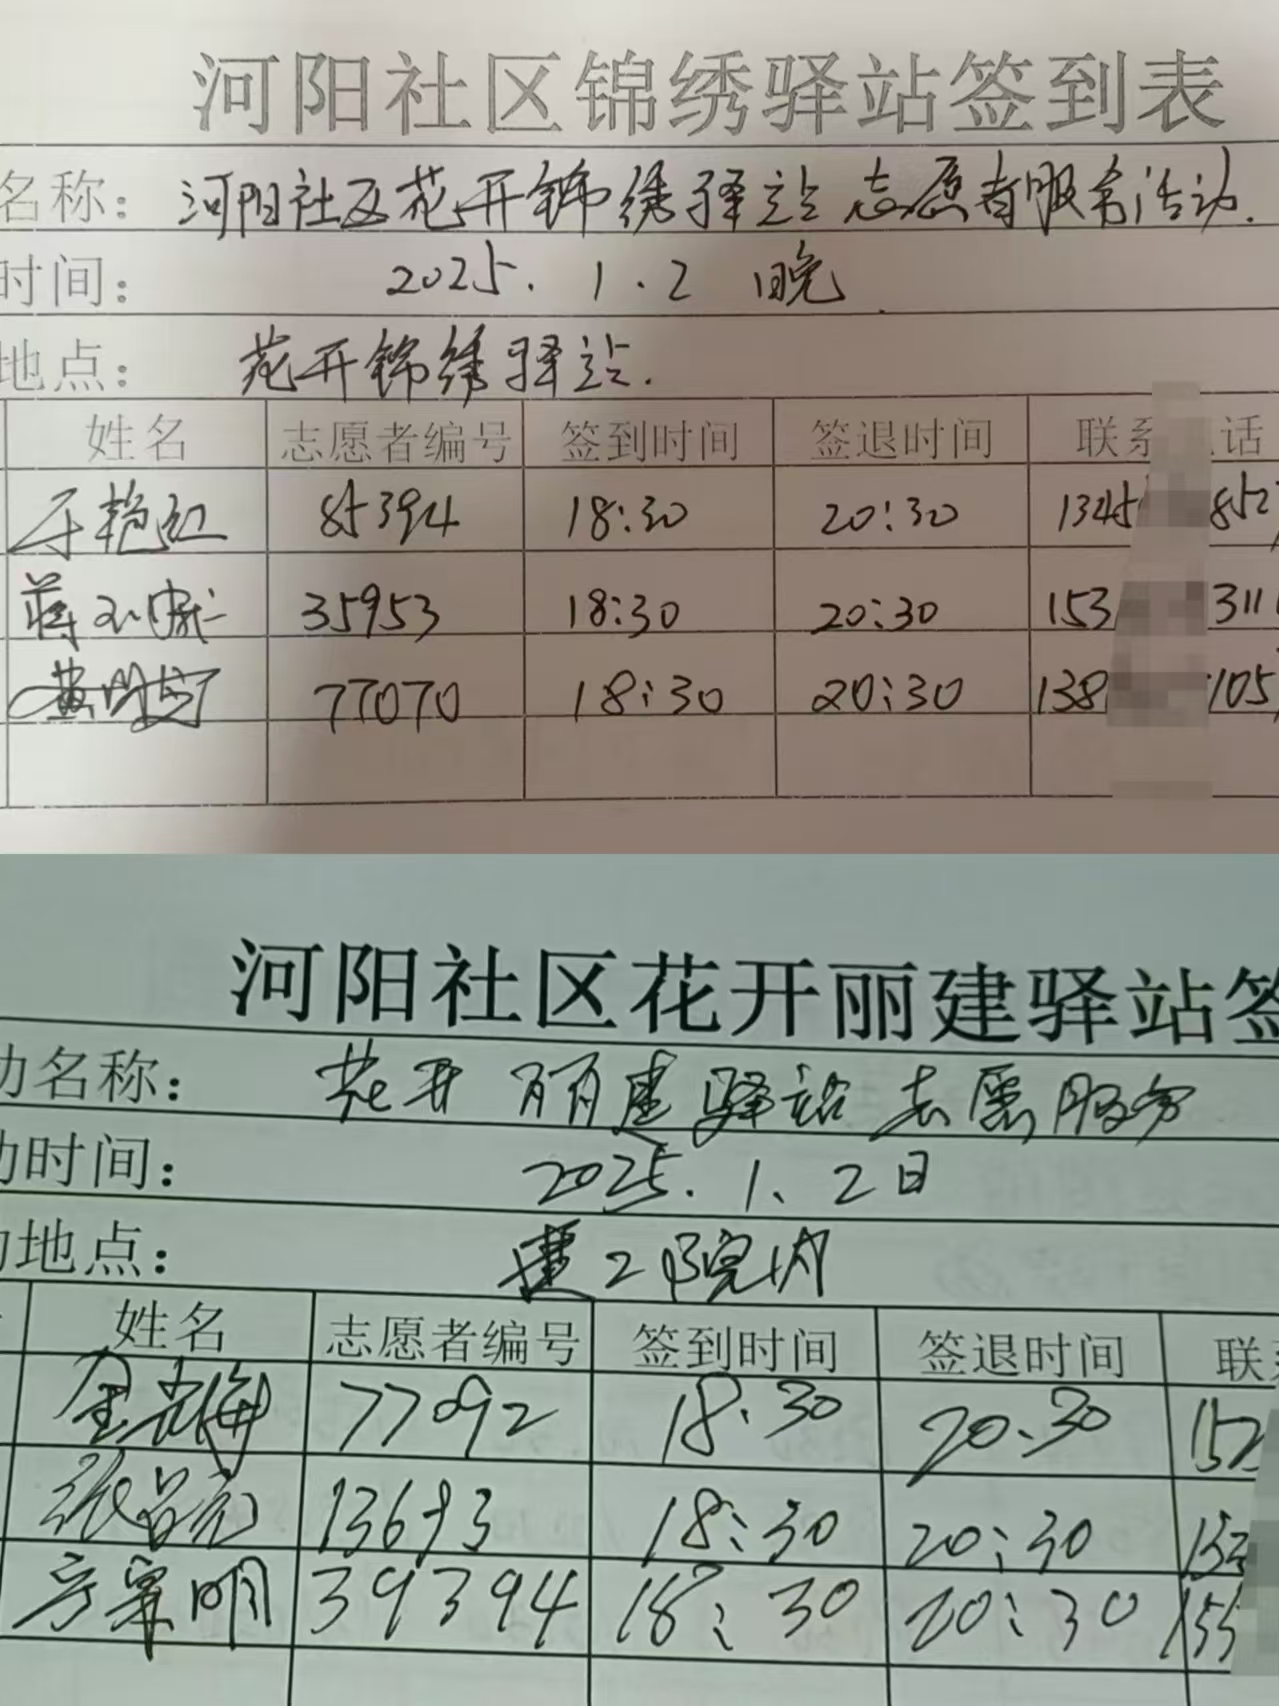 河阳社区锦绣驿站签到表
名称: 河阳社区花开锦绣驿站志愿者服务活动.
时间: 2025.1.2 晚
地点: 花开锦绣驿站.
姓名 志愿者编号 签到时间 签退时间 联系 话
于艳红 85394 18:30 20:30 1345 852
蒋 35953 18:30 20:30 153 311
黄 77070 18:30 20:30 138 105
河阳社区花开丽建驿站签
动名称: 花开丽建驿站志愿服务
动时间: 2025.1、2日
动地点: 建2院内
姓名 志愿者编号 签到时间 签退时间 联系
金 77092 18.30 20.30 152
张 13693 18:30 20:30 152
方 明 39394 18:30 20:30 155